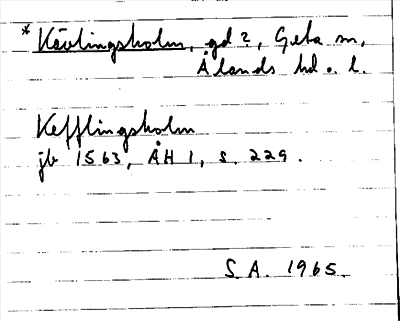 * Kävlingsholm, gd?, Geta sn,
Ålands hd o. l.
Kefflingsholm
jb 1563, ÅH 1, s. 229.
S.A. 1965